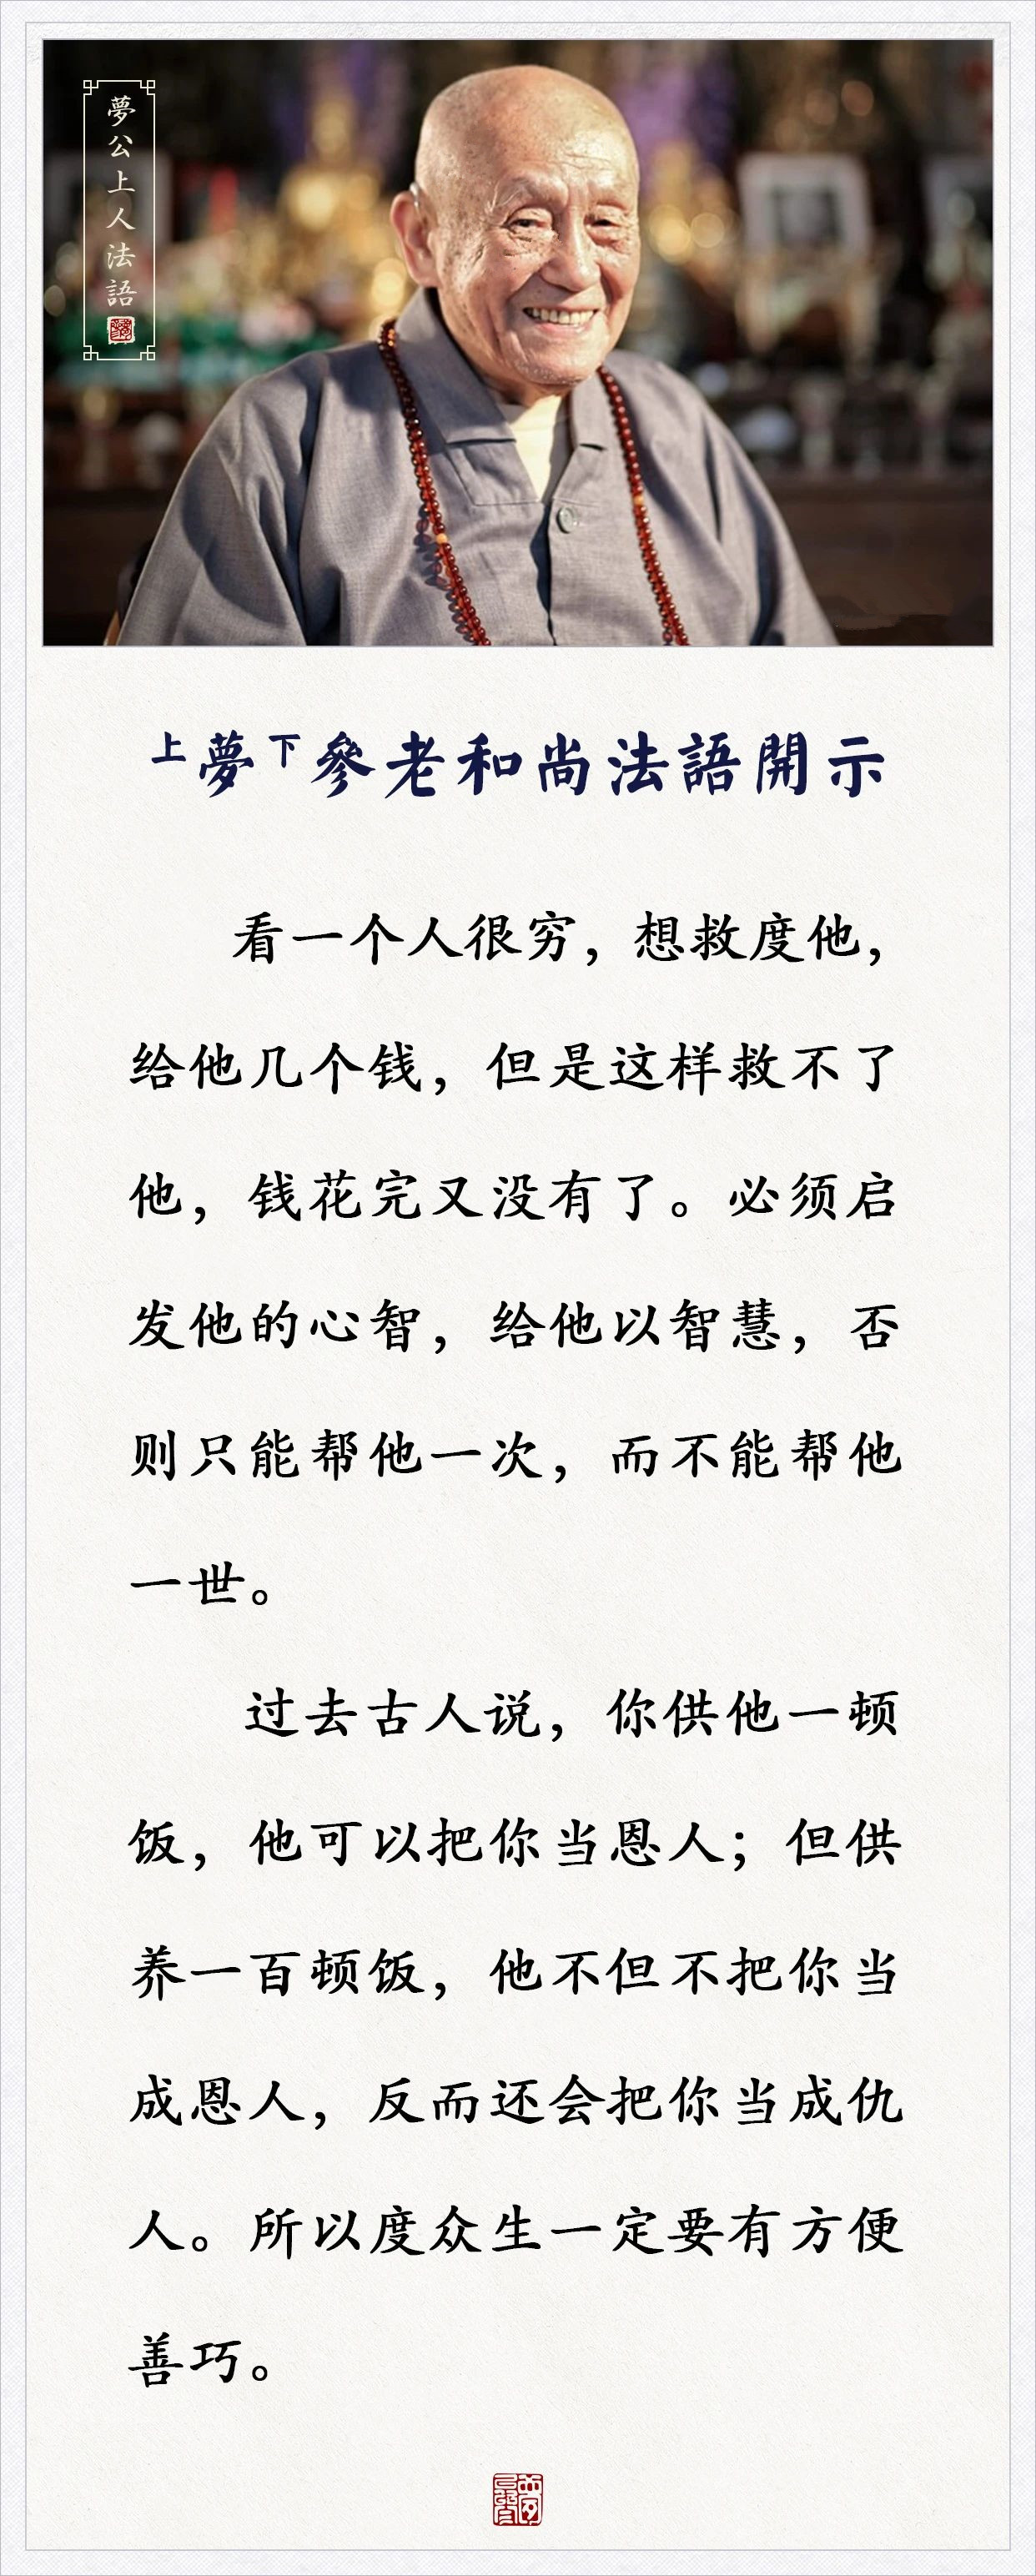 夢公上人法語
上夢下參老和尚法語開示
看一个人很穷，想救度他，
给他几个钱，但是这样救不了
他，钱花完又没有了。必须启
发他的心智，给他以智慧，否
则只能帮他一次，而不能帮他
一世。
过去古人说，你供他一顿
饭，他可以把你当恩人；但供
养一百顿饭，他不但不把你当
成恩人，反而还会把你当成仇
人。所以度众生一定要有方便
善巧。